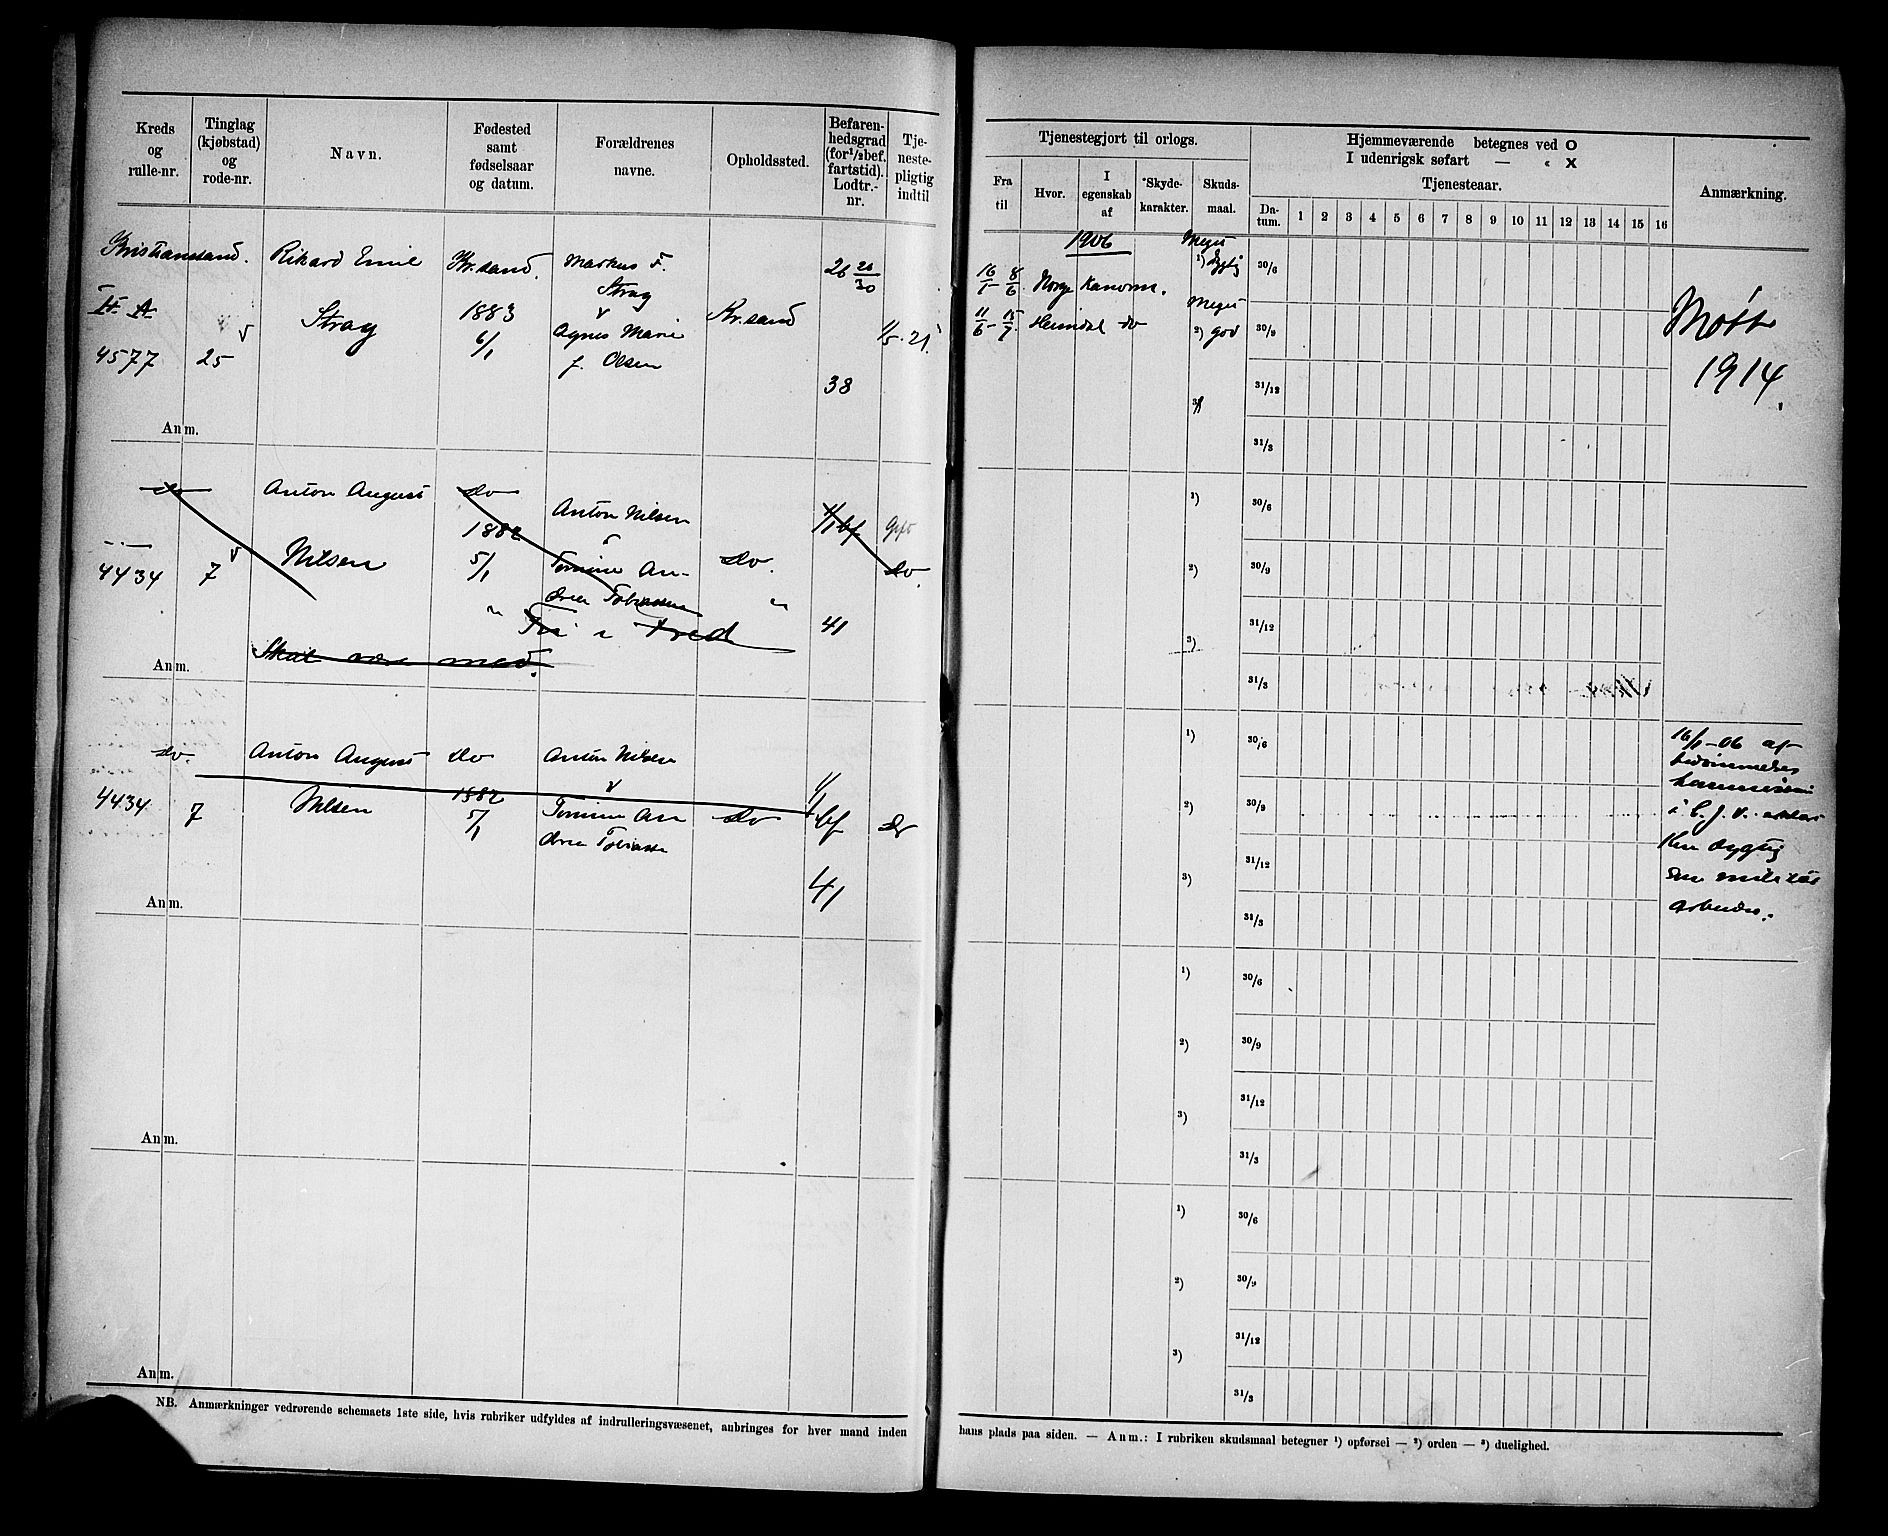 Kreds og rulle-nr.
Tinglag (kjøbstad) og rode-nr.
Navn.
Fødested samt fødselsaar og datum.
Forældrenes navne.
Opholdssted.
Befarenhedsgrad (for 1/2 bef. fartstid). Lodtr.-nr.
Tjenestepligtig indtil
Tjenestegjort til orlogs.
Fra til
Hvor.
I egenskab af
*Skydekarakter.
Skudsmaal.
Hjemmeværende betegnes ved O
I udenrigsk søfart — « X
Tjenesteaar.
Datum.
1 2 3 4 5 6 7 8 9 10 11 12 13 14 15 16
Anmærkning.
Kristianssand. Rikard Emil Kr.sand. Markus F. 26 20/30
Strag
II A Strag 1883 v Kr.sand
6/1 Agnes Marie
4577 25 f. Olsen
38
Anm.
1906
16/1 - 8/6 Norge Kanonm. 1) Meget dygtig
11/6 - 15/7 Heimdal do 2) Meget god
3)
30/6
30/9
31/12
31/3
Møtt
1914.
do Anton August do Anton Nilsen
1882
4434 7 Nilsen 5/1 Tomine An- do. do.
drea Tobiassen
41
Skal være med.
Anm.
1)
2)
3)
30/6
30/9
31/12
31/3
do. Anton August do Anton Nilsen
4434 7 Nilsen 1882 v
5/1 Tomine An do bf do
drea Tobiasse
41
Anm.
1)
2)
3)
30/6
30/9
31/12
31/3
16/1-06 af
bedømmelses
kommission
i C. J. V.
Kun dygtig
som militær
arbeider.
Anm.
1)
2)
3)
30/6
30/9
31/12
31/3
Anm.
1)
2)
3)
30/6
30/9
31/12
31/3
NB. Anmærkninger vedrørende schemaets 1ste side, hvis rubriker udfyldes af indrulleringsvæsenet, anbringes for hver mand inden
hans plads paa siden. — Anm.: I rubriken skudsmaal betegner ¹) opførsel — ²) orden — ³) duelighed.